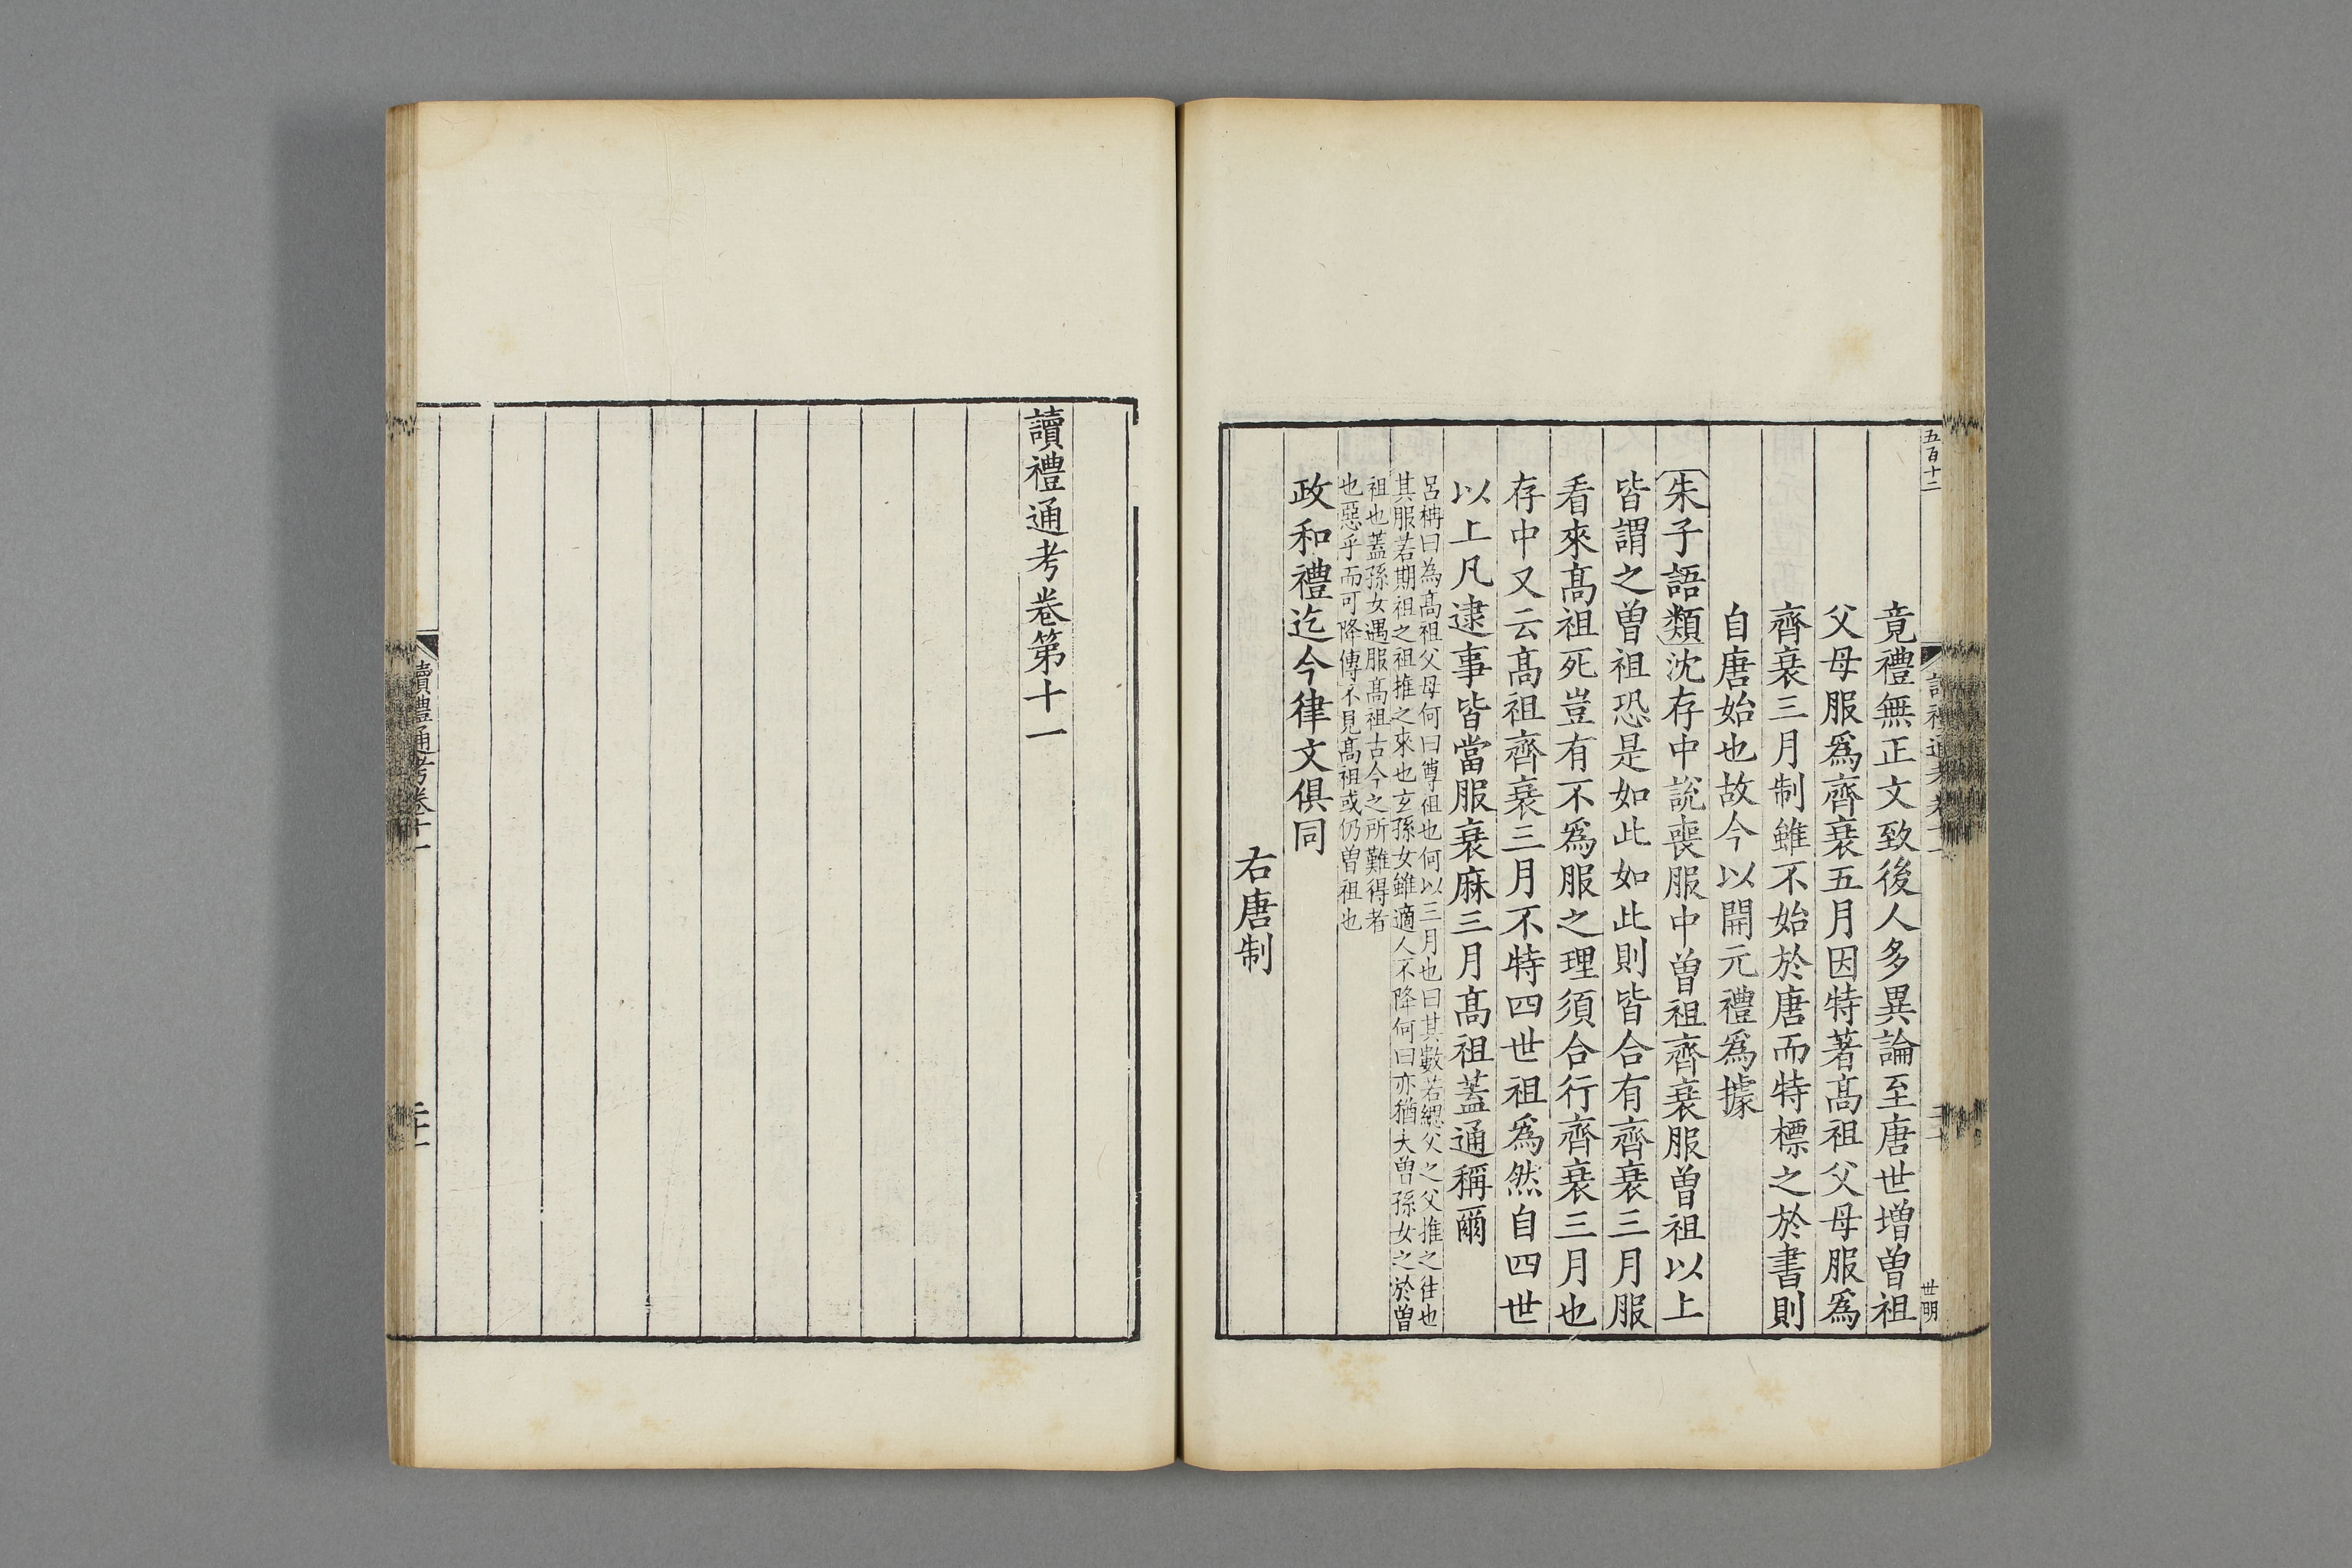 五百十二
世明
竟禮無正文致後人多異論至唐世增曽祖
父母服爲齊衰五月因特著髙祖父母服爲
齊衰三月制雖不始於唐而特標之於書則
自唐始也故今以開元禮爲據
朱子語類沈存中說喪服中曽祖齊衰服曽祖以上
皆謂之曽祖恐是如此如此則皆合有齊衰三月服
看來髙祖死豈有不爲服之理須合行齊衰三月也
存中又云髙祖齊衰三月不特四世祖爲然自四世
以上凡逮事皆當服衰麻三月髙祖蓋通稱爾
呂柟曰為髙祖父母何曰尊祖也何以三月也曰其數若緦父之父推之往也
其服若期祖之祖推之來也玄孫女雖適人不降何曰亦猶大曽孫女之於曽
祖也蓋孫女遇服髙祖古今之所難得者
也惡乎而可降傳不見髙祖或仍曽祖也
政和禮迄今律文俱同
右唐制
讀禮通考卷第十一
讀禮通考卷十一
二十一